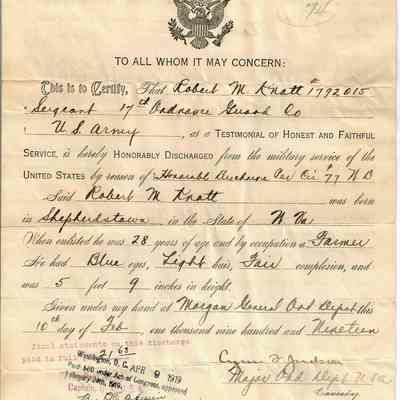 74
TO ALL WHOM IT MAY CONCERN:
This is to Certify, That Robert M. Knott #1792015
Sergeant 17th Ordnance Guard Co
U.S. Army, as a TESTIMONIAL OF HONEST AND FAITHFUL
SERVICE, is hereby HONORABLY DISCHARGED from the military service of the
UNITED STATES by reason of Honorable Discharge Per Cir #77 W D
Said Robert M Knott was born
in Shepherdstown, in the State of W Va
When enlisted he was 28 years of age and by occupation a Farmer
He had Blue eyes, Light hair, Fair complexion, and
was 5 feet 9 inches in height.
Given under my hand at Morgan General Ord Depot this
10th day of Feb one thousand nine hundred and Nineteen
final statements on this discharge
paid in full
21 63
Washington, D. C. APR 9 1919
Paid $60 under Act of Congress, approved
February 24, 1919.
Captain
Major Ord Dept USA
Commanding